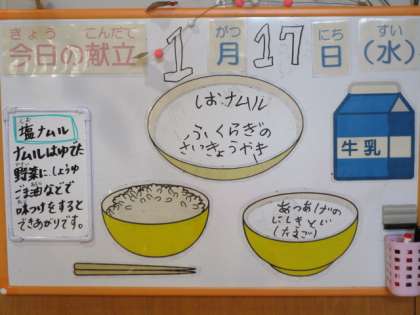 きょう こんだて がつ にち すい
今日の献立 1月17日(水)
しおナムル
ふくらぎの
さいきょうやき
牛乳
しお
塩ナムル
ナムルはゆでた
野菜にしょうゆ
ごま油などで
味つけをすると
できあがりです。
あつあげの
にしきとじ
(たまご)